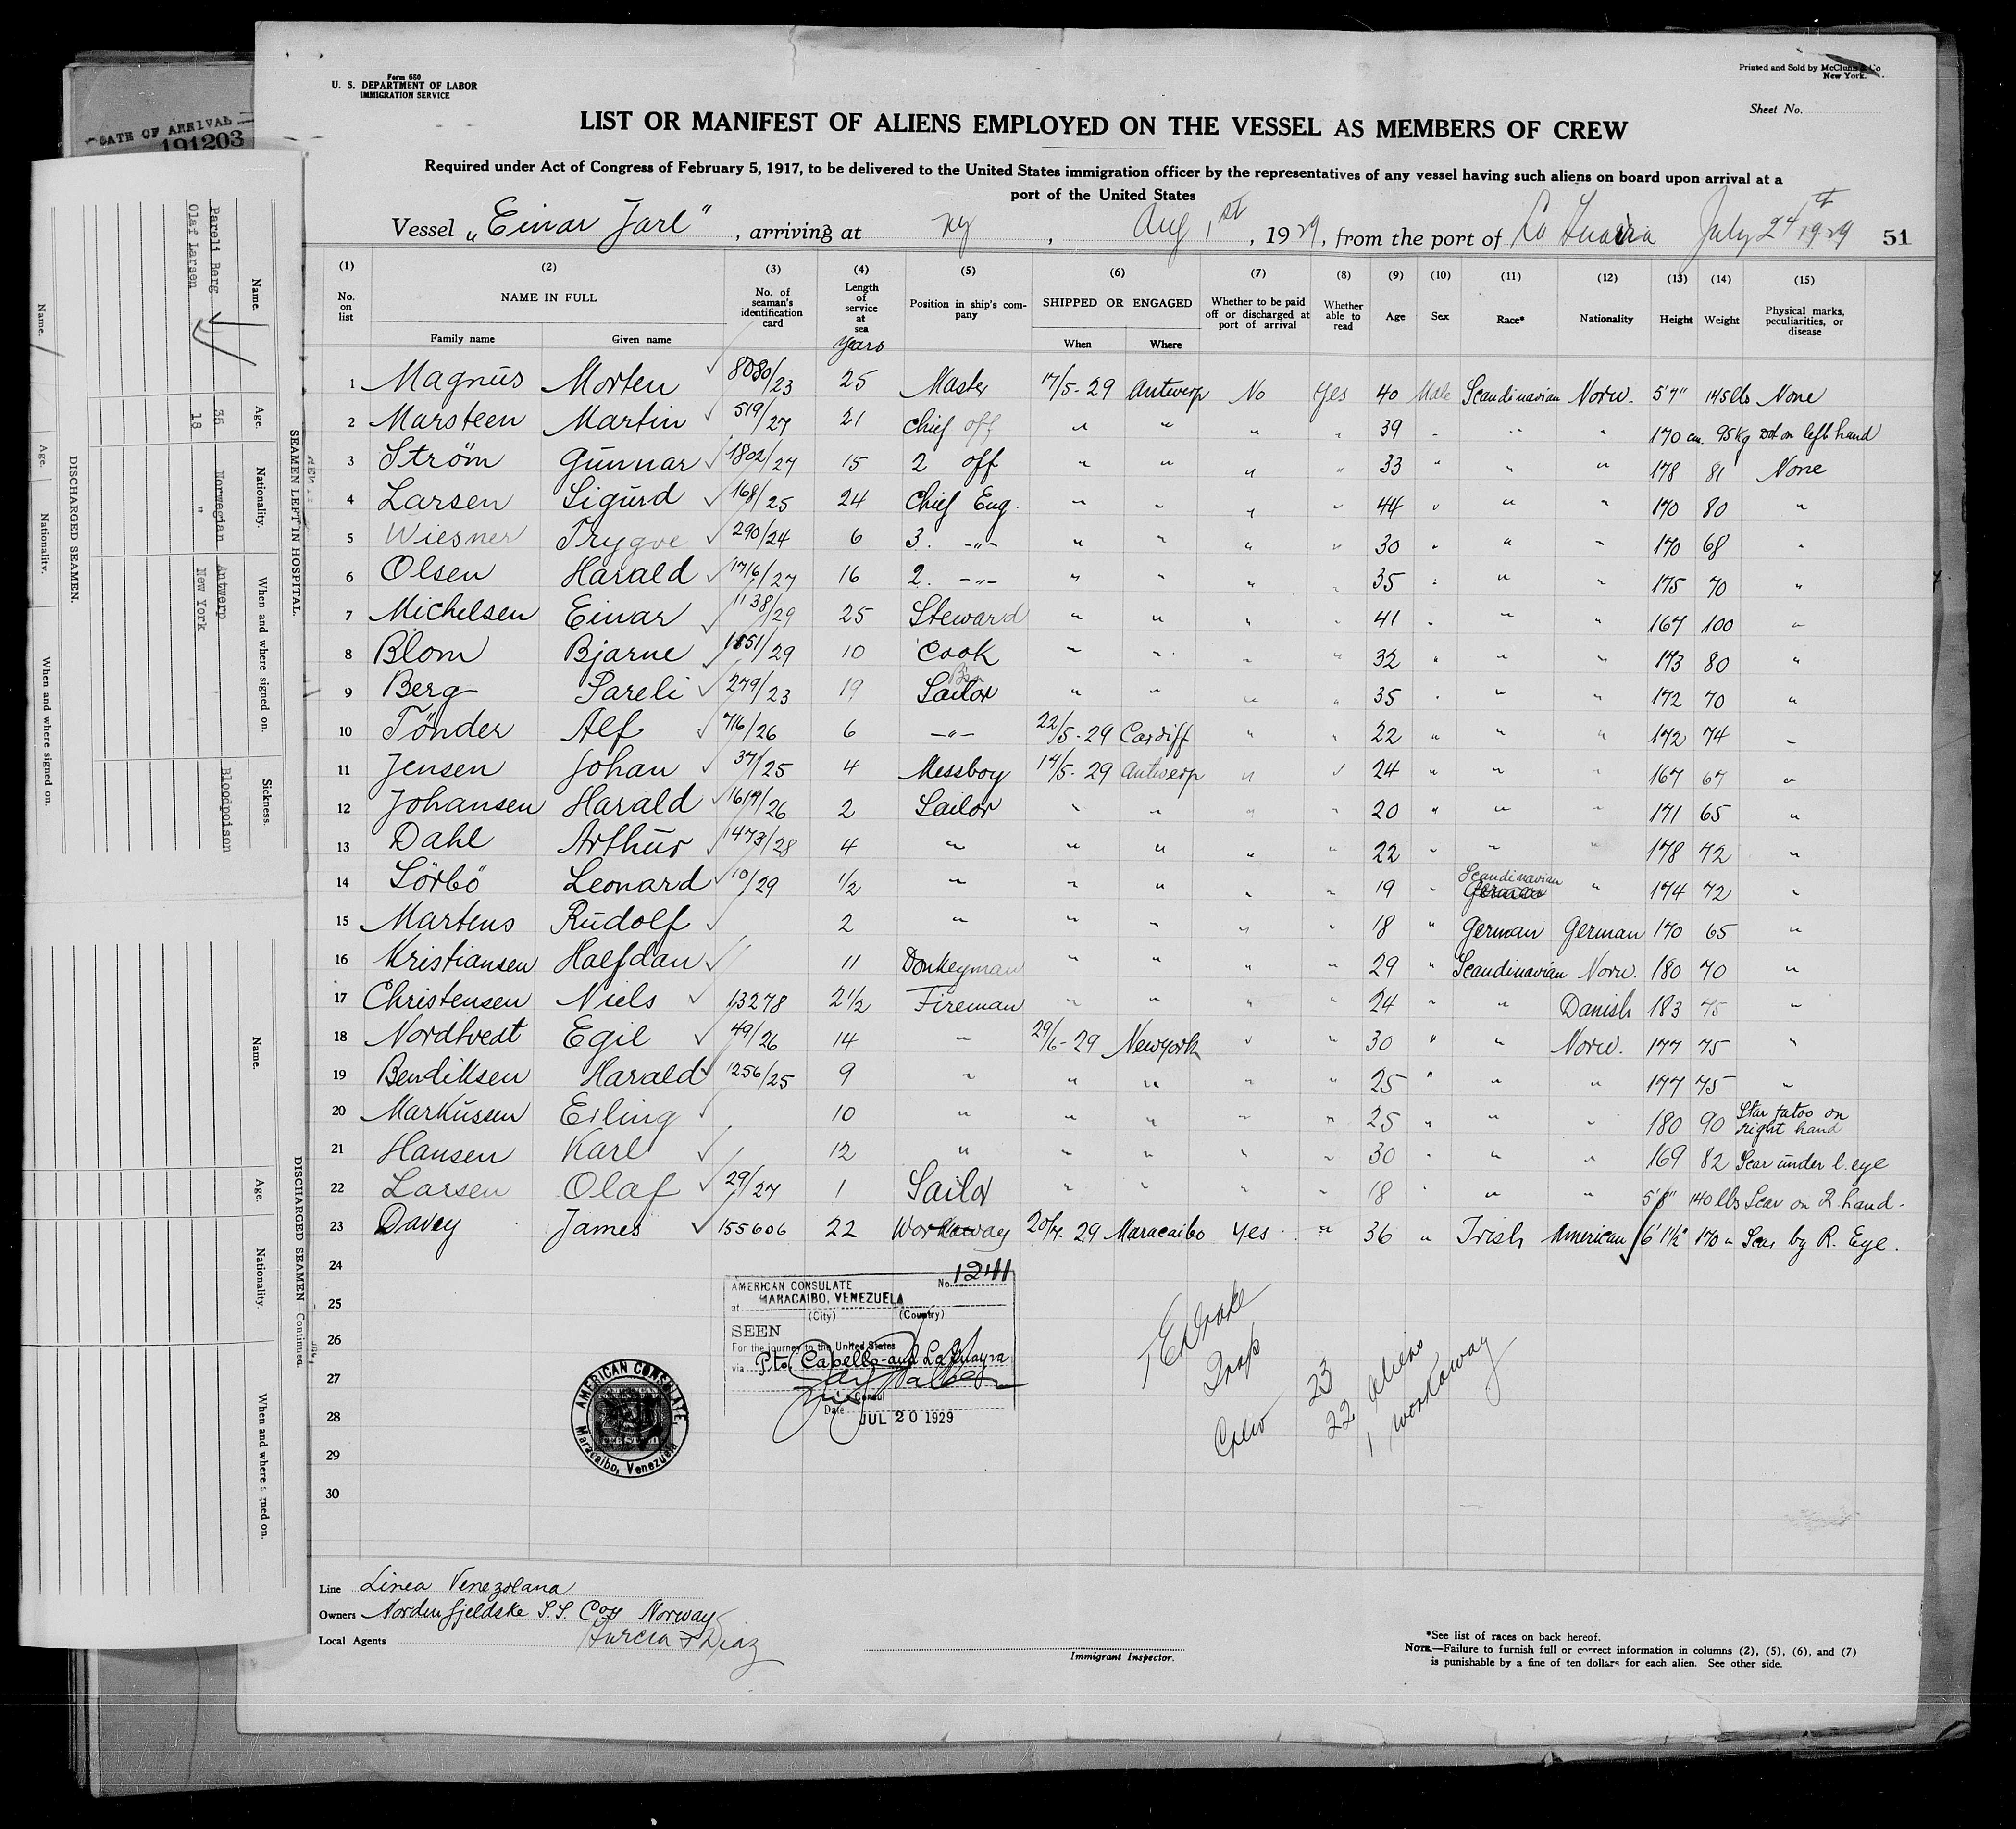 Form 680
U. S. DEPARTMENT OF LABOR
IMMIGRATION SERVICE
Printed and Sold by McClunn & Co
New York.
Sheet No.
LIST OR MANIFEST OF ALIENS EMPLOYED ON THE VESSEL AS MEMBERS OF CREW
Required under Act of Congress of February 5, 1917, to be delivered to the United States immigration officer by the representatives of any vessel having such aliens on board upon arrival at a
port of the United States
Vessel „Einar Jarl“, arriving at Ny, Aug 1st, 1929, from the port of La Guaira July 24th 1929 51
(1) (2) (3) (4) (5) (6) (7) (8) (9) (10) (11) (12) (13) (14) (15)
No. on list NAME IN FULL Family name Given name No. of seaman's identification card Length of service at sea years Position in ship's company SHIPPED OR ENGAGED When Where Whether to be paid off or discharged at port of arrival Whether able to read Age Sex Race* Nationality Height Weight Physical marks, peculiarities, or disease
1 Magnus Morten 8080/23 25 Master 17/5-29 Antwerp No Yes 40 Male Scandinavian Norw. 5'7" 145lbs None
2 Marsteen Martin 519/27 21 Chief off " " " " 39 " " " 170 cm. 95Kg Dot on left hand
3 Strøm Gunnar 1802/27 15 2 off " " " " 33 " " " 178 81 None
4 Larsen Sigurd 168/25 24 Chief Eng. " " " " 44 " " " 170 80 "
5 Wiesner Trygve 290/24 6 3. -"- " " " " 30 " " " 170 68 "
6 Olsen Harald 1716/27 16 2. -"- " " " " 35 " " " 175 70 "
7 Michelsen Einar 1138/29 25 Steward " " " " 41 " " " 167 100 "
8 Blom Bjarne 1851/29 10 Cook " " " " 32 " " " 173 80 "
9 Berg Pareli 279/23 19 Sailor " " " " 35 " " " 172 70 "
10 Tönder Alf 716/26 6 -"- 22/5-29 Cardiff " " 22 " " " 172 74 "
11 Jensen Johan 37/25 4 Messboy 17/5-29 Antwerp " " 24 " " " 167 67 "
12 Johansen Harald 1617/26 2 Sailor " " " " 20 " " " 171 65 "
13 Dahl Arthur 1473/28 4 " " " " " 22 " " " 178 72 "
14 Sörbö Leonard 10/29 1/2 " " " " " 19 " Scandinavian German " 174 72 "
15 Martens Rudolf 2 " " " " " 18 " German German 170 65 "
16 Kristiansen Halfdan 11 Donkeyman " " " " 29 " Scandinavian Norw. 180 70 "
17 Christensen Niels 13278 2 1/2 Fireman " " " " 24 " " Danish 183 75 "
18 Nordtvedt Egil 49/26 14 " 29/6-29 Newyork " " 30 " " Norw. 177 75 "
19 Bendiksen Harald 1256/25 9 " " " " " 25 " " " 177 75 "
20 Markussen Erling 10 " " " " " 25 " " " 180 90 Star tatoo on right hand
21 Hansen Karl 12 " " " " " 30 " " " 169 82 Scar under l. eye
22 Larsen Olaf 29/27 1 Sailor " " " " 18 " " " 5'8" 140 lbs Scar on R. hand.
23 Davey James 155606 22 Workaway 20/7-29 Maracaibo Yes " 36 " Irish American 6' 1 1/2" 170 " Scar by R. Eye.
24
25
26
27
28
29
30
AMERICAN CONSULATE No. 1211
at MARACAIBO, VENEZUELA
(City) (Country)
SEEN
For the journey to the United States
via Pto. Cabello and La Guayra
Consul
Date JUL 20 1929
AMERICAN CONSULATE,
Maracaibo, Venezuela
Crew 23
22 aliens
1 workaway
Line Linea Venezolana
Owners Nordenfjeldske S.S. Coy Norway
Local Agents Garcia & Diaz
Immigrant Inspector.
*See list of races on back hereof.
NOTE.—Failure to furnish full or correct information in columns (2), (5), (6), and (7)
is punishable by a fine of ten dollars for each alien. See other side.
DATE OF ARRIVAL
191203
SEAMEN LEFT IN HOSPITAL.
Name. Age. Nationality. When and where signed on. Sickness.
Pareli Berg 35 Norwegian Antwerp Bloodpoison
Olaf Larsen 18 " New York
DISCHARGED SEAMEN.
Name. Age. Nationality. When and where signed on.
DISCHARGED SEAMEN—Continued.
Name. Age. Nationality. When and where signed on.